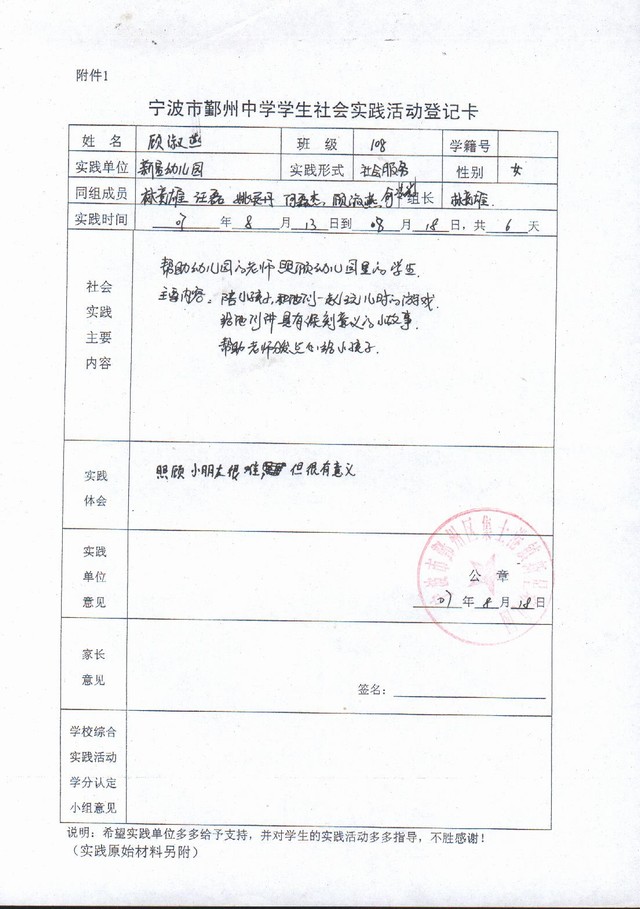 附件1
宁波市鄞州中学学生社会实践活动登记卡
姓 名 顾淑燕 班 级 108 学籍号
实践单位 新星幼儿园 实践形式 社会服务 性别 女
同组成员 林贵雄 汪磊 组长 林贵雄
实践时间 07 年 8 月 13 日到 08 月 18 日,共 6 天
社会实践主要内容
帮助幼儿园的老师照顾幼儿园里的学生.
主要内容: 陪小孩子 一起玩儿时的游戏.
给他们讲具有深刻意义的小故事.
帮助老师分发点心给小孩子.
实践体会
照顾小朋友很难 但很有意义
实践单位意见
公 章
07 年 8 月 18 日
家长意见
签名:
学校综合实践活动学分认定小组意见
说明:希望实践单位多多给予支持,并对学生的实践活动多多指导,不胜感谢!
(实践原始材料另附)